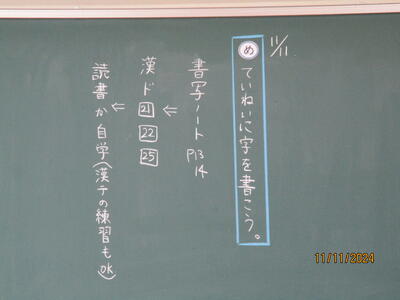 11/11
めていねいに字を書こう。
書写ノート P13
14
↓
漢ド 21 22 25
↓
読書か自学(漢テの練習もOK)
11/11/2024